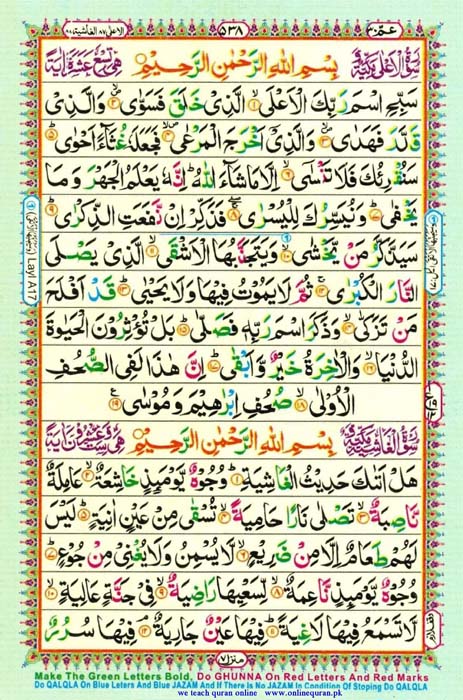 عمّ ٣٠ ٥٣٨ الاعلى ٨٧ الغاشية ٨٨
سُوْرَةُ الْاَعْلٰى مَكِّيَّةٌ بِسْمِ اللّٰهِ الرَّحْمٰنِ الرَّحِيْمِ هِيَ تِسْعَ عَشَرَةَ اٰيَةً
سَبِّحِ اسْمَ رَبِّكَ الْاَعْلٰى ۙ﴿۱﴾ الَّذِيْ خَلَقَ فَسَوّٰى ۙ﴿۲﴾ وَالَّذِيْ
قَدَّرَ فَهَدٰى ۙ﴿۳﴾ وَالَّذِيْٓ اَخْرَجَ الْمَرْعٰى ۙ﴿۴﴾ فَجَعَلَهٗ غُثَآءً اَحْوٰى ؕ﴿۵﴾
سَنُقْرِئُكَ فَلَا تَنْسٰٓى ۙ﴿۶﴾ اِلَّا مَا شَآءَ اللّٰهُ ؕ اِنَّهٗ يَعْلَمُ الْجَهْرَ وَمَا
يَخْفٰى ؕ﴿۷﴾ وَنُيَسِّرُكَ لِلْيُسْرٰى ۚۖ﴿۸﴾ فَذَكِّرْ اِنْ نَّفَعَتِ الذِّكْرٰى ؕ﴿۹﴾
سَيَذَّكَّرُ مَنْ يَّخْشٰى ۙ﴿۱۰﴾ وَيَتَجَنَّبُهَا الْاَشْقَى ۙ﴿۱۱﴾ الَّذِيْ يَصْلَى
النَّارَ الْكُبْرٰى ۚ﴿۱۲﴾ ثُمَّ لَا يَمُوْتُ فِيْهَا وَلَا يَحْيٰى ؕ﴿۱۳﴾ قَدْ اَفْلَحَ
مَنْ تَزَكّٰى ۙ﴿۱۴﴾ وَذَكَرَ اسْمَ رَبِّهٖ فَصَلّٰى ؕ﴿۱۵﴾ بَلْ تُؤْثِرُوْنَ الْحَيٰوةَ
الدُّنْيَا ۖ﴿۱۶﴾ وَالْاٰخِرَةُ خَيْرٌ وَّاَبْقٰى ؕ﴿۱۷﴾ اِنَّ هٰذَا لَفِي الصُّحُفِ
الْاُوْلٰى ۙ﴿۱۸﴾ صُحُفِ اِبْرٰهِيْمَ وَمُوْسٰى ﴿۱۹﴾
سُوْرَةُ الْغَاشِيَةِ مَكِّيَّةٌ بِسْمِ اللّٰهِ الرَّحْمٰنِ الرَّحِيْمِ هِيَ سِتٌّ وَّعِشْرُوْنَ اٰيَةً
هَلْ اَتٰىكَ حَدِيْثُ الْغَاشِيَةِ ؕ﴿۱﴾ وُجُوْهٌ يَّوْمَئِذٍ خَاشِعَةٌ ۙ﴿۲﴾ عَامِلَةٌ
نَّاصِبَةٌ ۙ﴿۳﴾ تَصْلٰى نَارًا حَامِيَةً ۙ﴿۴﴾ تُسْقٰى مِنْ عَيْنٍ اٰنِيَةٍ ؕ﴿۵﴾ لَيْسَ
لَهُمْ طَعَامٌ اِلَّا مِنْ ضَرِيْعٍ ۙ﴿۶﴾ لَّا يُسْمِنُ وَلَا يُغْنِيْ مِنْ جُوْعٍ ؕ﴿۷﴾
وُجُوْهٌ يَّوْمَئِذٍ نَّاعِمَةٌ ۙ﴿۸﴾ لِّسَعْيِهَا رَاضِيَةٌ ۙ﴿۹﴾ فِيْ جَنَّةٍ عَالِيَةٍ ۙ﴿۱۰﴾
لَّا تَسْمَعُ فِيْهَا لَاغِيَةً ؕ﴿۱۱﴾ فِيْهَا عَيْنٌ جَارِيَةٌ ۘ﴿۱۲﴾ فِيْهَا سُرُرٌ
Layl A17
منزل ٧
Make The Green Letters Bold, Do GHUNNA On Red Letters And Red Marks
Do QALQLA On Blue Leters And Blue JAZAM And If There Is No JAZAM In Condition Of Stoping Do QALQLA
we teach quran online www.onlinequran.pk